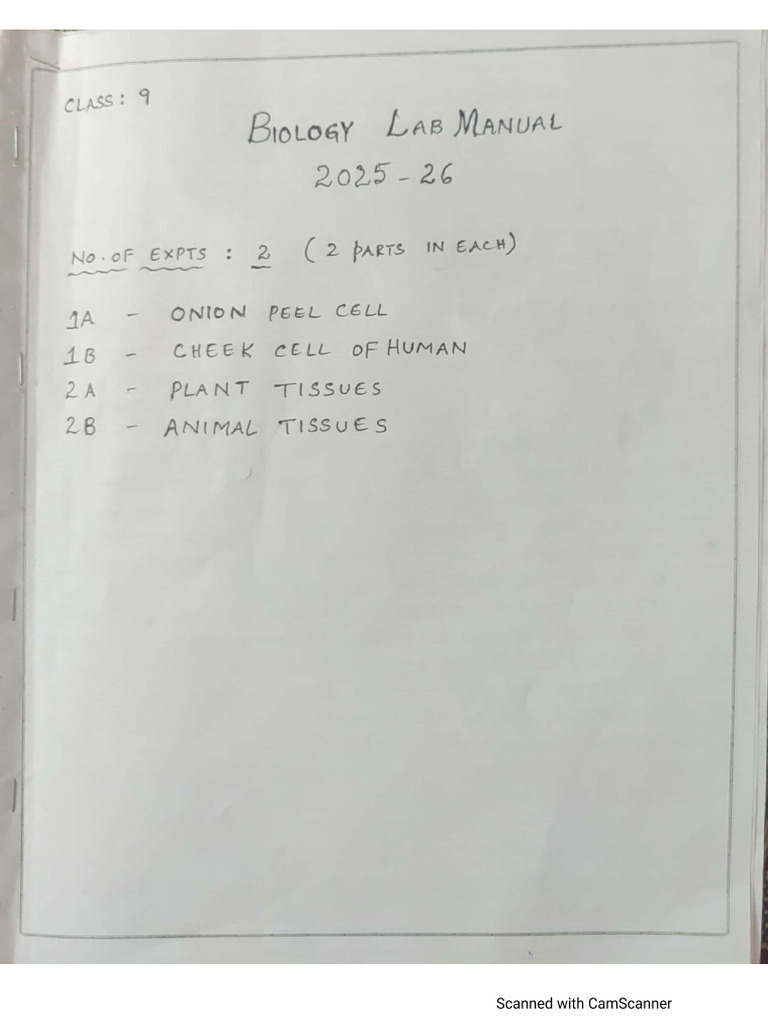 CLASS: 9
BIOLOGY LAB MANUAL
2025-26
NO. OF EXPTS : 2 (2 PARTS IN EACH)
1A - ONION PEEL CELL
1B - CHEEK CELL OF HUMAN
2A - PLANT TISSUES
2B - ANIMAL TISSUES
Scanned with CamScanner